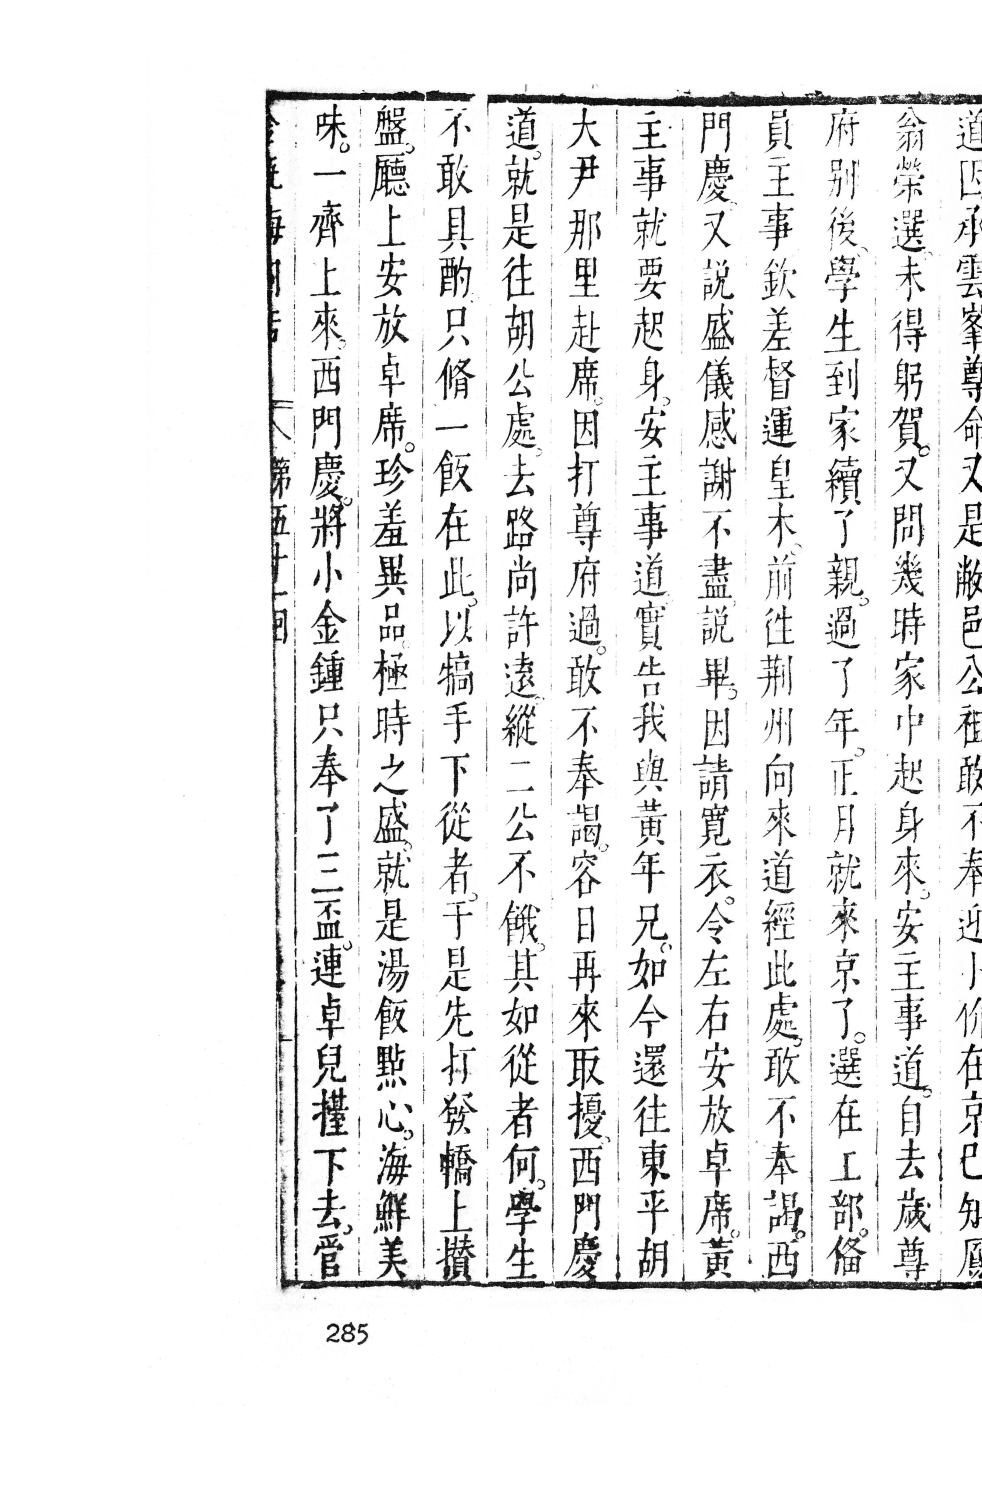 道因承雲峯尊命又是敝邑公祖敢不奉迎小价在京已知鳳
翁榮選。未得躬賀。又問幾時家中起身來。安主事道。自去歲尊
府別後。學生到家續了親。過了年。正月就來京了。選在工部。偹
員主事欽差督運皇木。前徃荆州向來道經此處。敢不奉謁。西
門慶。又説盛儀感謝不盡説畢。因請寬衣。令左右安放卓席。黃
主事就要起身。安主事道實告我與黃年兄。如今還往東平胡
大尹那里赴席。因打尊府過。敢不奉謁。容日再來取擾。西門慶
道。就是往胡公處。去路尚許遠。縱二公不餓。其如從者何。學生
不敢具酌。只脩一飯在此。以犒手下從者。于是先打發轎上攢
盤。廳上安放卓席。珍羞異品極時之盛。就是湯飯點心。海鮮美
味。一齊上來。西門慶。將小金鍾只奉了三盃。連卓兒擡下去。管
第五十一回
285